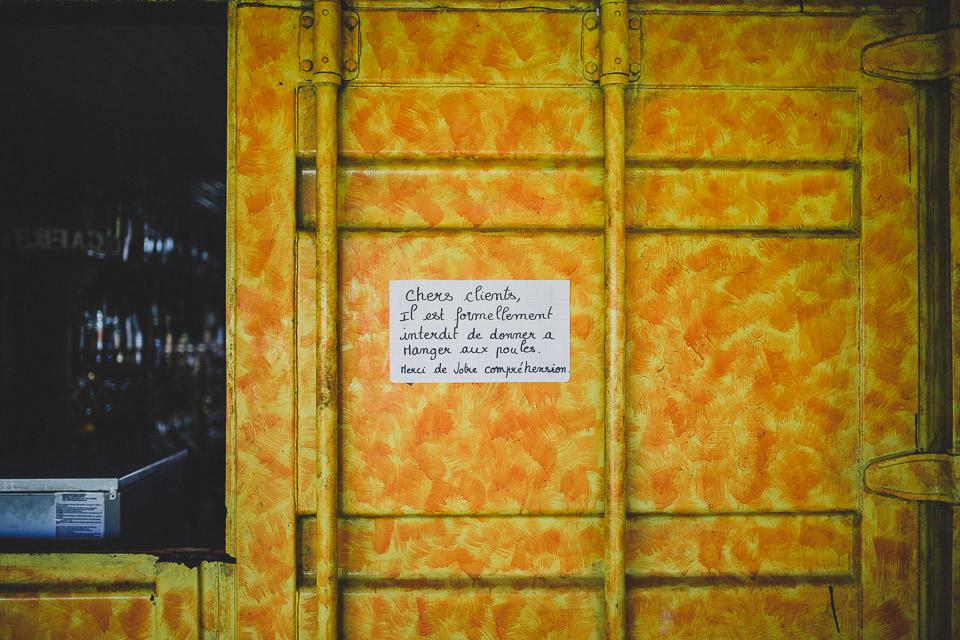 Chers clients,
Il est formellement
interdit de donner a
Manger aux poules.
Merci de Votre compréhension.